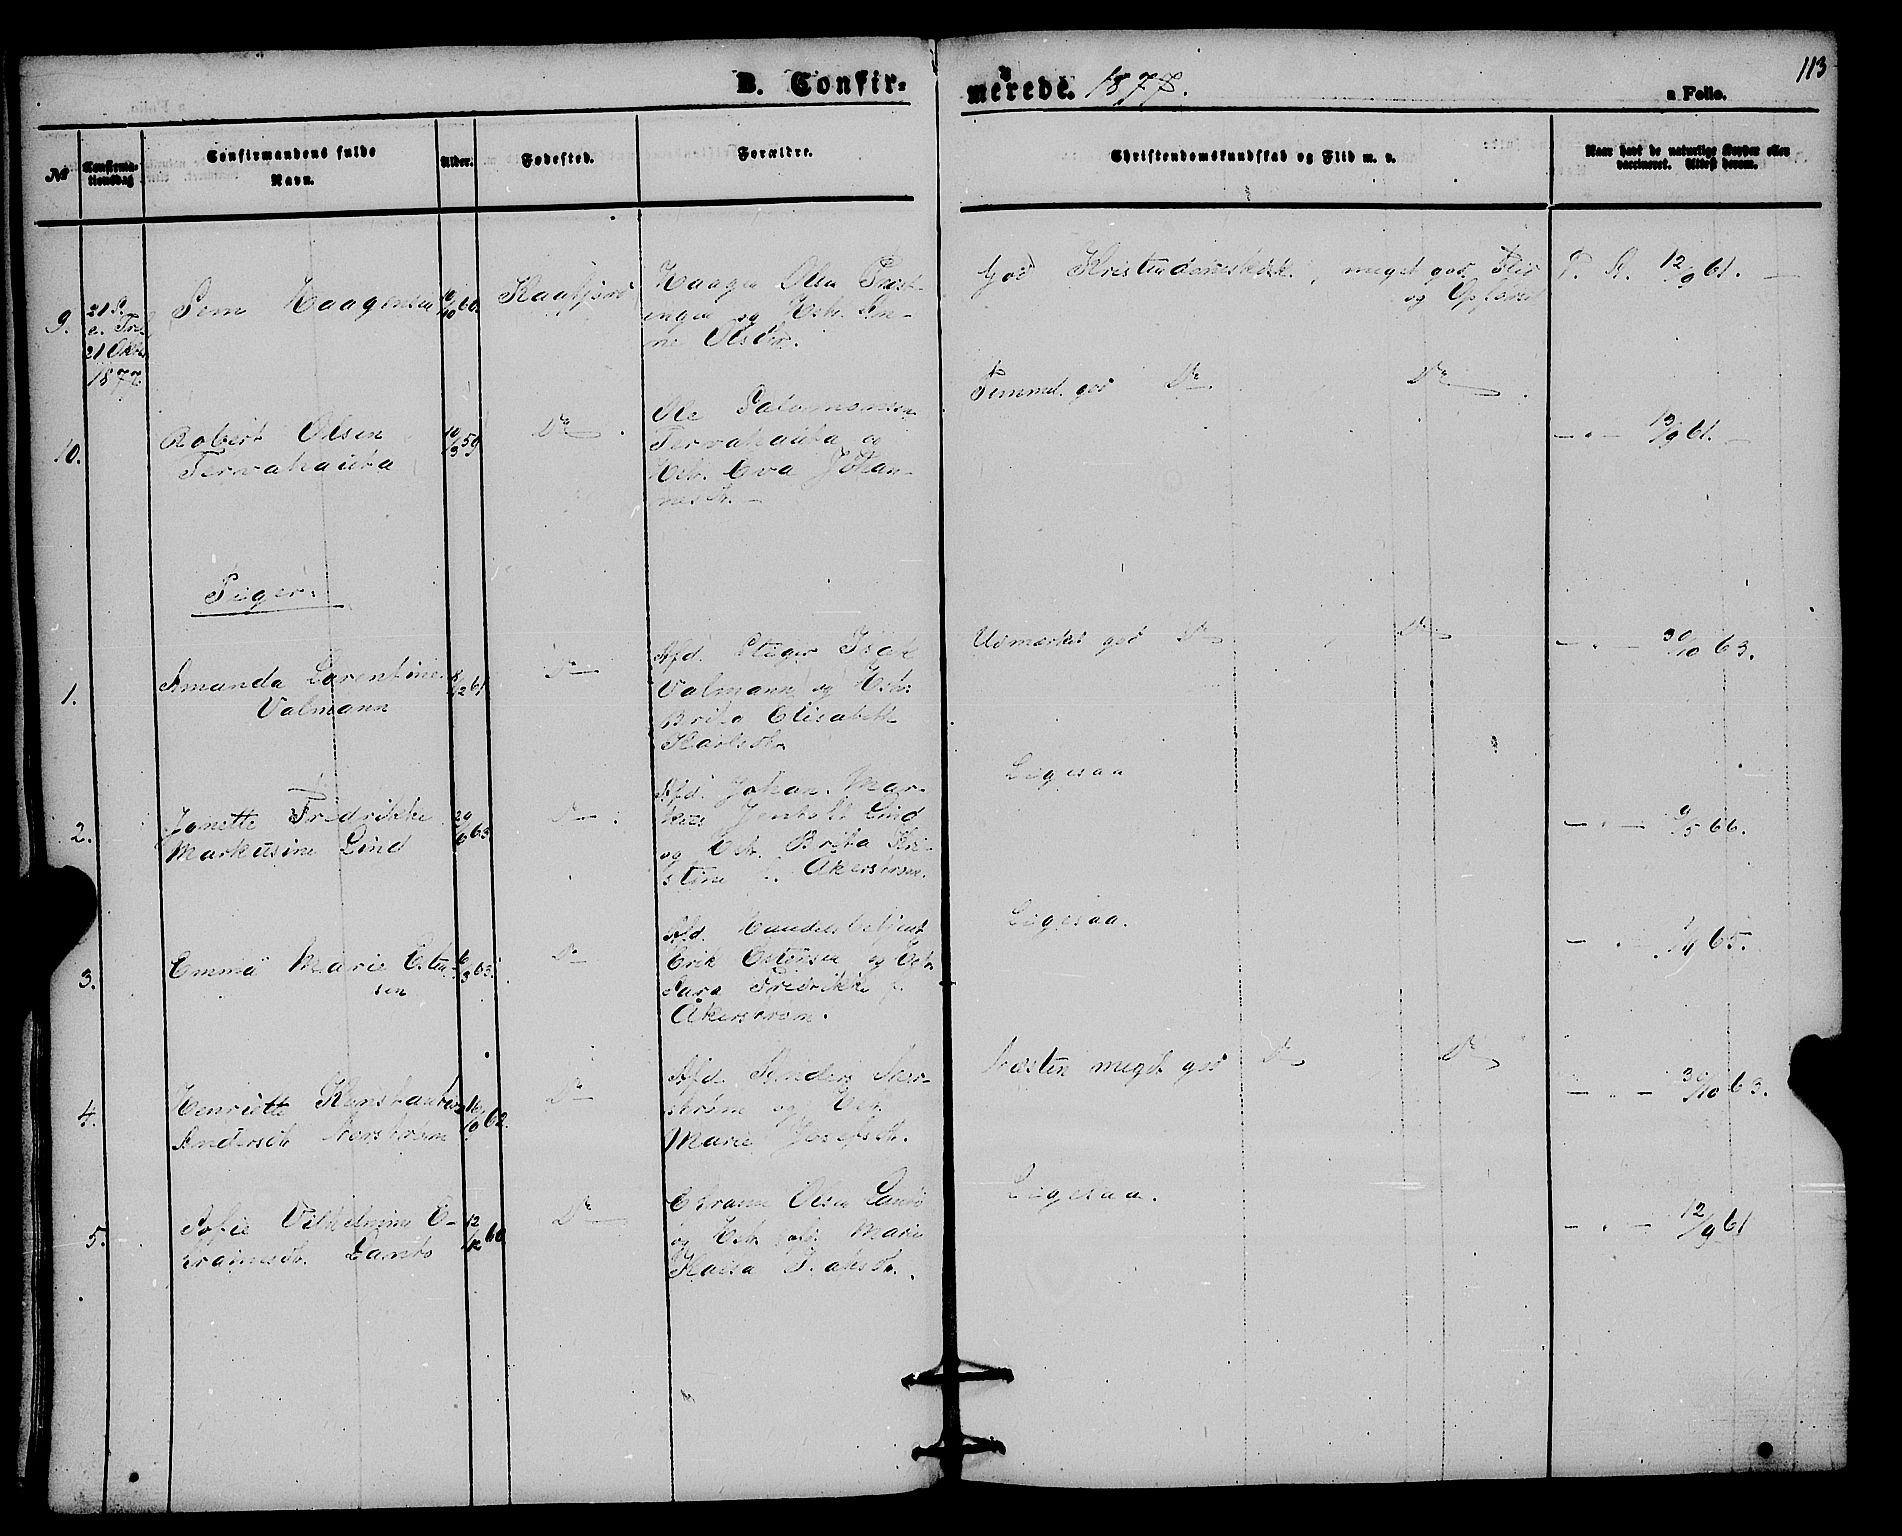 B. Confir-
merede. 1877.
113
a Folio.
No
Confirma-
tionsdag
Confirmandens fulde
Navn.
Alder.
Fødested.
Forældre.
Christendomskundskab og Flid m. v.
Naar havt de naturlige Kopper eller
vaccineret. Attest herom.
9.
21 S.
e. Tref.
21 Oktbr.
1877
Haagensen
10/10 60.
Kaafjord
Haagen Olsen
og Hstr. An-
ne Olsdtr.
God Kristendomskdsk., meget god Flid
og Opførsel
P. A. 12/9 61. —
10.
Robert Olsen
Tervahauta
10/3 59
Do
Ole Salomonsen
Tervahauta og
Hstr. Eva Johan-
nesdtr. —
Temmel. god Do Do
— " — 13/9 61. —
Piger:
1.
Amanda Larentine
Valmann
8/12 61
Do
Afd. Stiger Isak
Valmann og Hstr.
Brita Elisabeth
Karlsdtr.
Udmærket god Do Do
— " — 30/10 63.
2.
Janette Fredrikke
Markusine Lind
29/6 63
Do
Afd. Johan Mar-
kus Lind
og Hstr. Brita Kri-
stine f. Åkerstrøm.
Ligesaa
— " — 9/5 66.
3.
Emma Marie Esten-
sen
6/3 63.
Do
Afd. Handelsbetjent
Erik Estensen og Hstr.
Sara Fredrikke f.
Åkerstrøm.
Ligesaa.
— " — 65.
4.
Henriette Konstantine
Andersdtr. Norstrøm
16/9 62.
Do
Afd. Anders Nor-
strøm og Hstr.
Marie Josefsdtr.
Næsten meget god Do Do
— " — 30/10 63.
5.
Sofie Vilhelmine E-
framsdtr. Lanto
12/12 60
Do
Efraim Olsen Lanto
og Hstr. afd. Marie
Kaisa
Ligesaa.
— " — 12/9 61